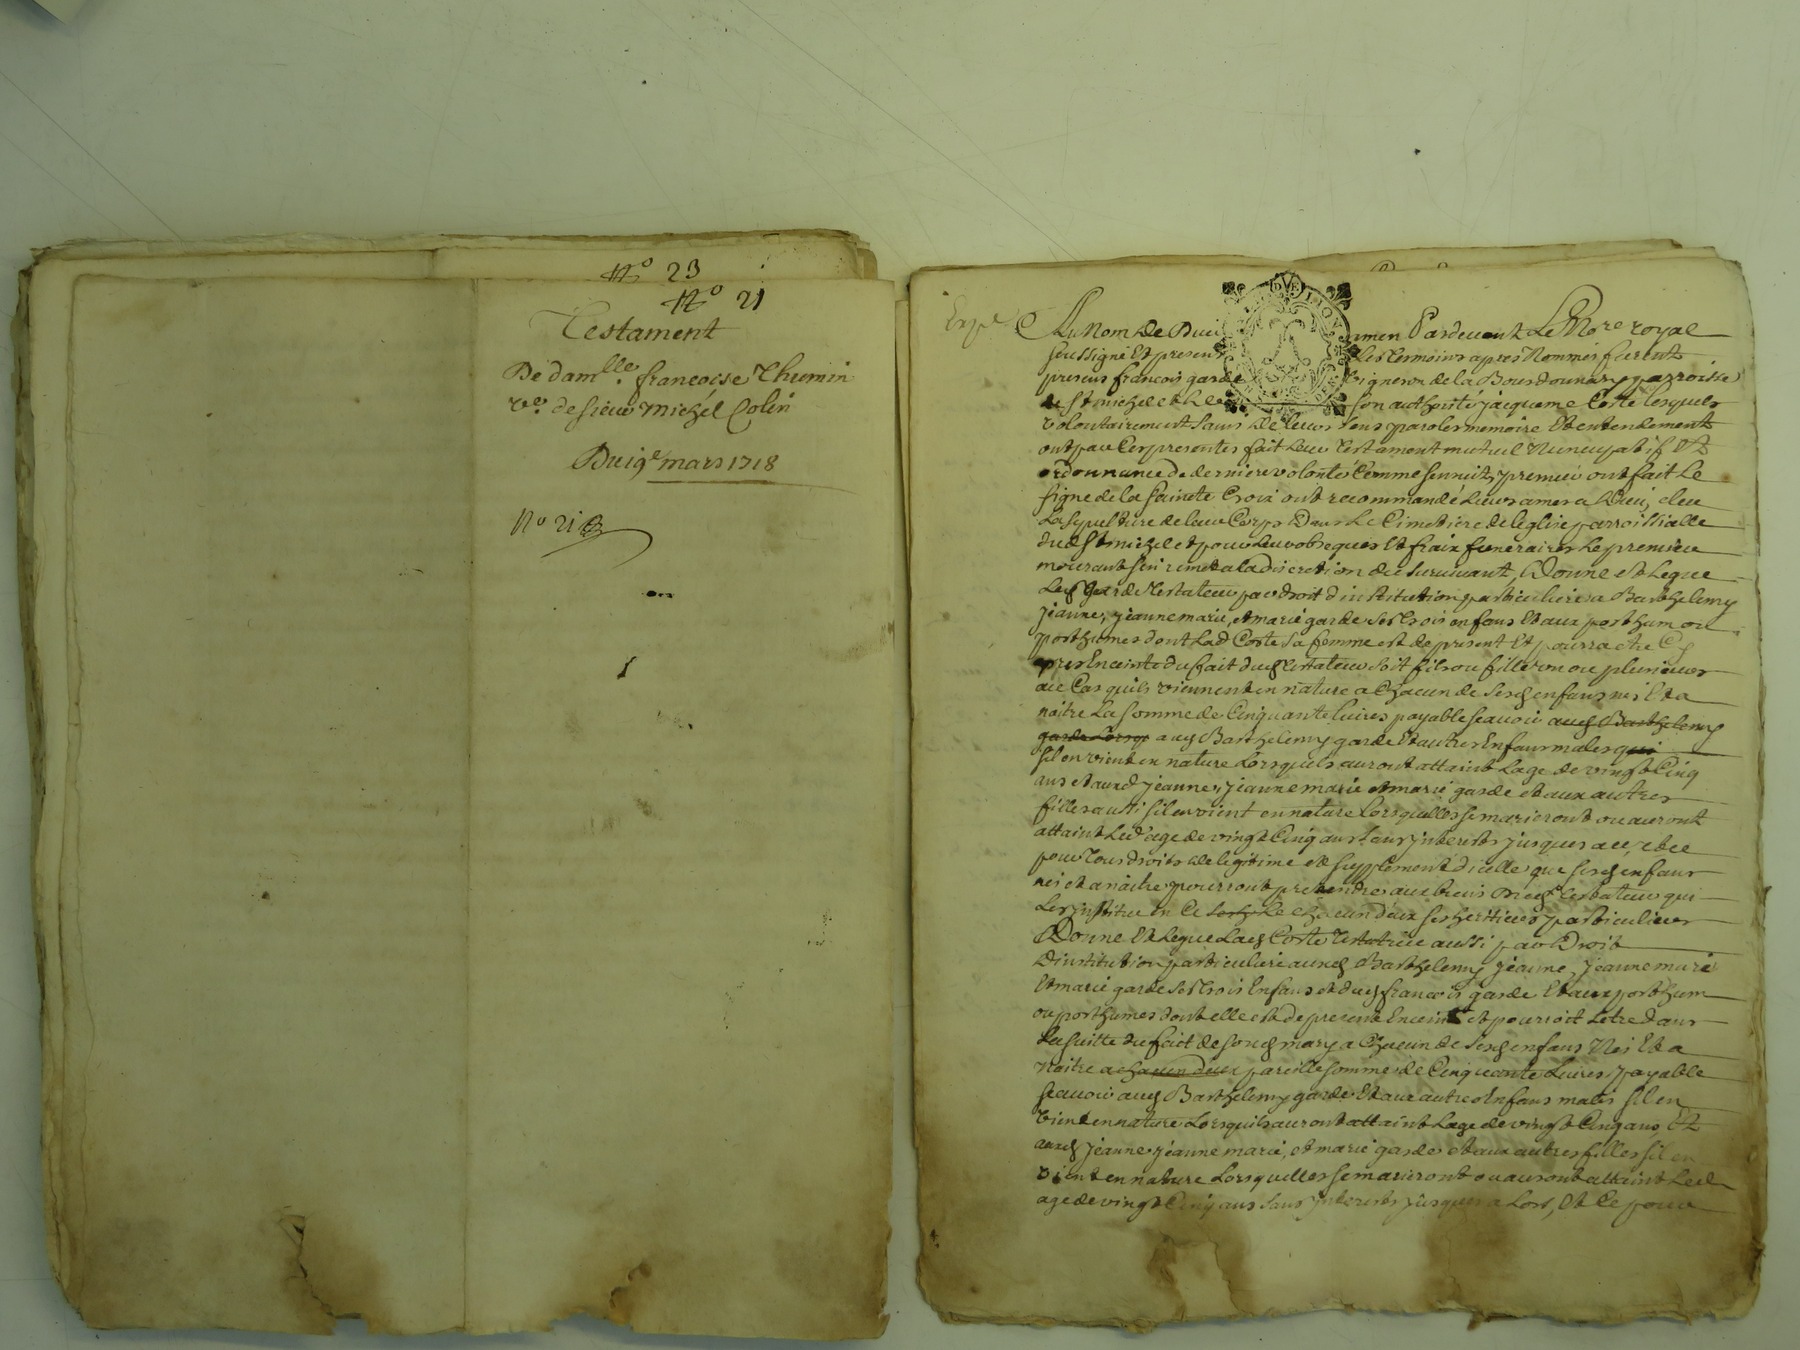 No 23
No 21
Testament
De damlle. francoise Thumin
ve. de sieur michel Colin
Du 19e mars 1718
No 21
Expé
Au Nom de Dieu amen Pardevant Le Nore royal
soussigné Et present Les tesmoins apres Nommés furent
presens francois garde vigneron de la Bourdounary parroisse
de St michel et de son authorité jacqueme Coste lesquels
volontairement sains de leurs sens parolles memoire Et entendement
ont par Ces presentes fait leur testament mutuel Nuncupatif Et
ordonnance de derniere volontés Comme sensuit, premier ont fait Le
signe de la sainte Croix ont recommandé Leurs ames a Dieu, eleu
La sepulture de leur Corps Dans Le Cimetiere de leglise parroissialle
dud St michel et pour leurs obseques Et fraix funeraires Le premier
mourant sen remet a la discretion du survivant, Donne et Legue
Led garde Testateur par droit dinstitution particuliere a Barthelemy
jeanne, jeanne marie, et marie garde ses trois enfans Et aux posthum ou
posthumes dont Lad Coste sa femme est de present Et pourra etre Cy
apres Enceinte du fait dud testateur soit fils ou fille un ou plusieurs
au Cas quils viennent en nature a Chacun de sesd enfans nes Et a
naitre La somme de Cinquante livres payable scavoir aud Barthelemy
garde Lorsq aud Barthelemy garde Et autres Enfans males qui
sil en vient en nature Lorsquils auront attaint Lage de vingt Cinq
ans et auxd jeanne, jeanne marie et marie garde et aux autres
filles aussi sil en vient en nature Lorsquelles se marieront ou auront
attaint Led age de vingt Cinq ans sans jnterests jusques a
pour tous droits de legitime et supplement dicelle que sesd enfans
nes et a naitre pourront pretendre aux biens dud testateur qui
Les jnstitue en Ce Chacun deux ses heritiers particuliers
Donne Et Legue Lad Coste Testatrice aussi par Droit
Dinstitution particuliere auxd Barthelemy jeanne, jeanne marie
Et marie garde ses trois Enfans et dud francois garde Et aux posthum
ou posthumes dont elle est de present Enceinte et pourroit Letre dans
La suitte du fait de sond mary a Chacun de sesd enfans Nes Et a
Naitre a chacun deux pareille somme de Cinquante Livres payable
scavoir aud Barthelemy garde Et aux autres Enfans males sil en
vient en nature Lorsquils auront attaint Lage de vingt Cinq ans, Et
auxd jeanne, jeanne marie, et marie garde et aux autres filles sil en
vient en nature Lorsquelles se marieront ou auront attaint Led
age de vingt Cinq ans sans jnterests jusques a Lors, Et Ce pour